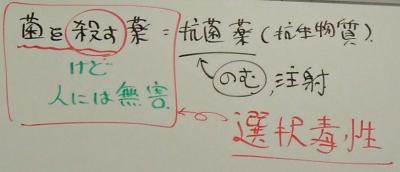 菌を殺す薬 = 抗菌薬 (抗生物質)
けど
人には無害
のむ, 注射
選択毒性